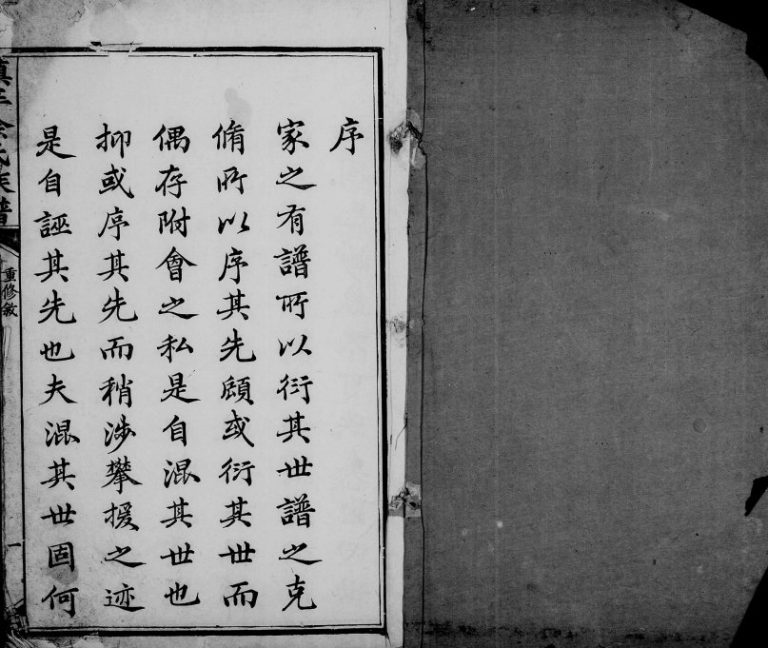 序
家之有譜所以衍其世譜之克
脩所以序其先顧或衍其世而
偶存附會之私是自混其世也
抑或序其先而稍涉攀援之迹
是自誣其先也夫混其世固何
氏族譜
重修敘
一